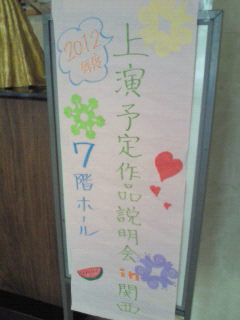 2012
年度
上演予定作品説明会in関西
7階ホール